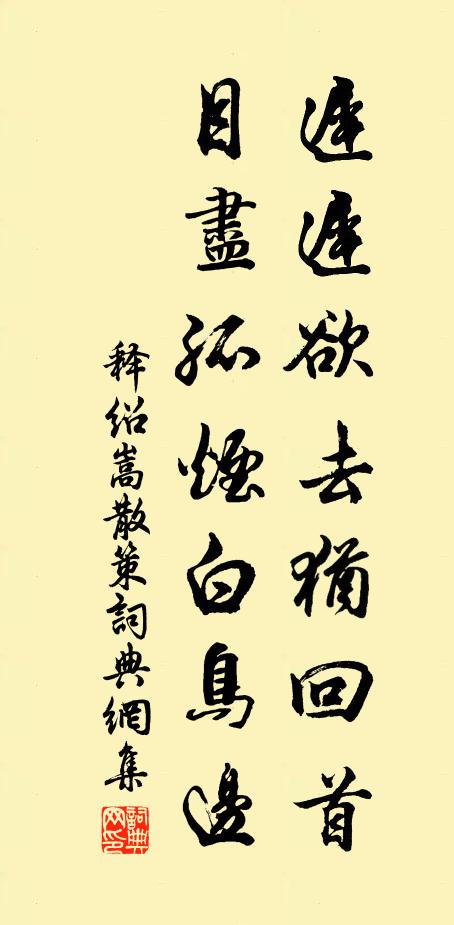 遲遲欲去猶回首
目盡孤煙白鳥邊
释绍嵩散策詞典網集
詞典網印